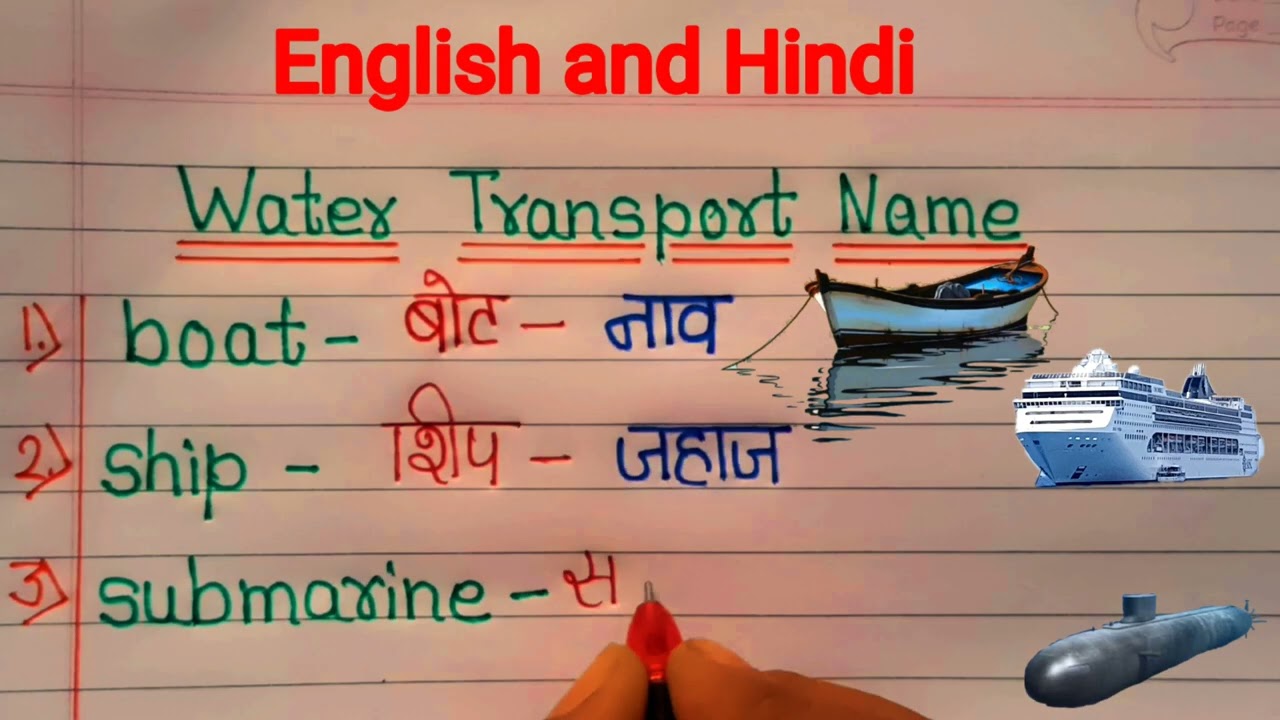 Page
English and Hindi
Water Transport Name
1.) boat - बोट - नाव
2.) ship - शिप - जहाज
3) submarine - स